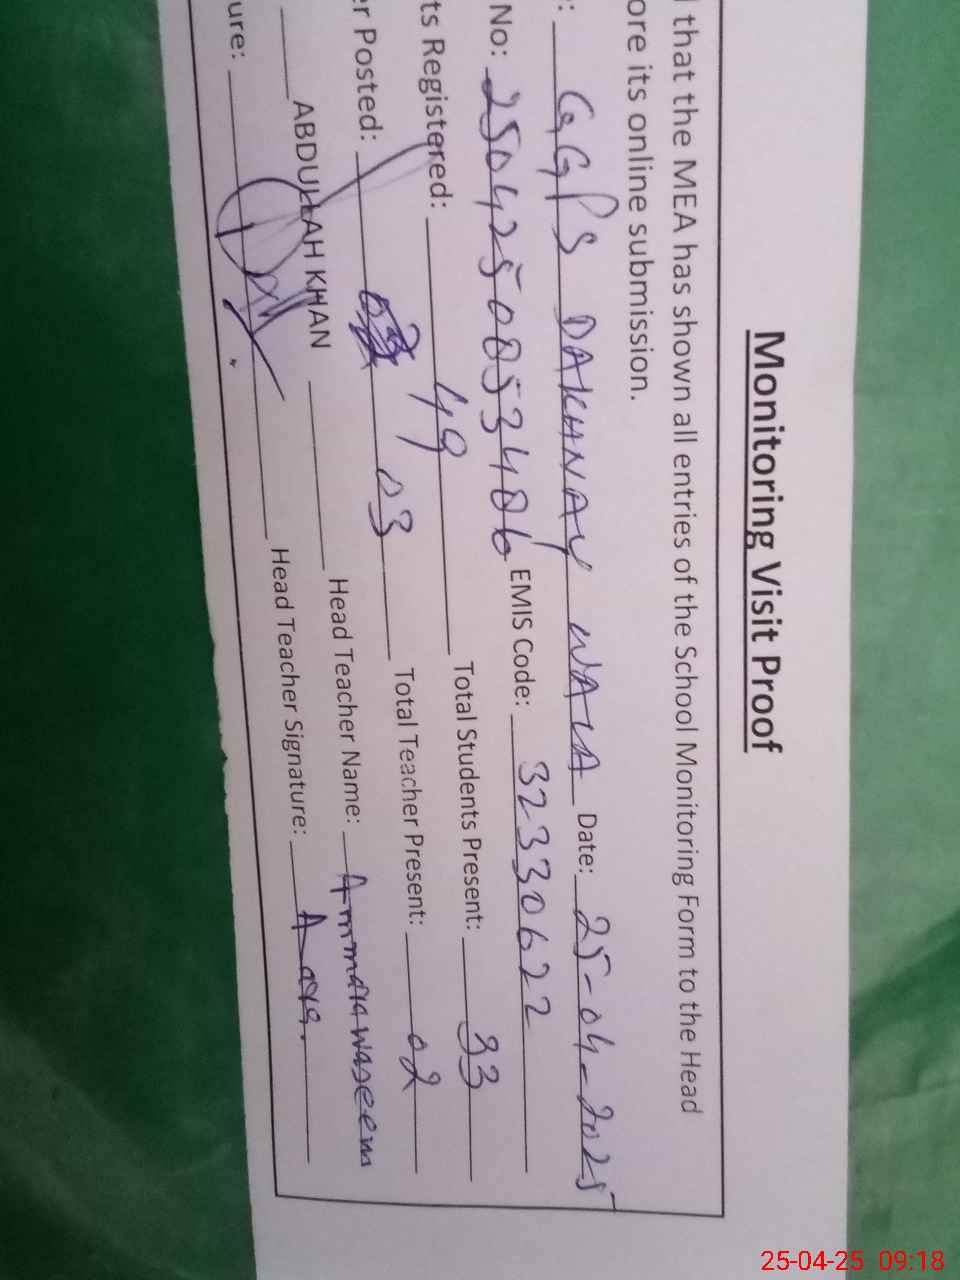 Monitoring Visit Proof
l that the MEA has shown all entries of the School Monitoring Form to the Head
ore its online submission.
e: GGPS DAKHNAY WALA Date: 25-04-2025
No: 250425085 3406 EMIS Code: 32330622
ts Registered: 49 Total Students Present: 33
er Posted: 03 Total Teacher Present: 02
ABDULLAH KHAN Head Teacher Name: Ammara waseem
ure: Head Teacher Signature:
25-04-25 09:18